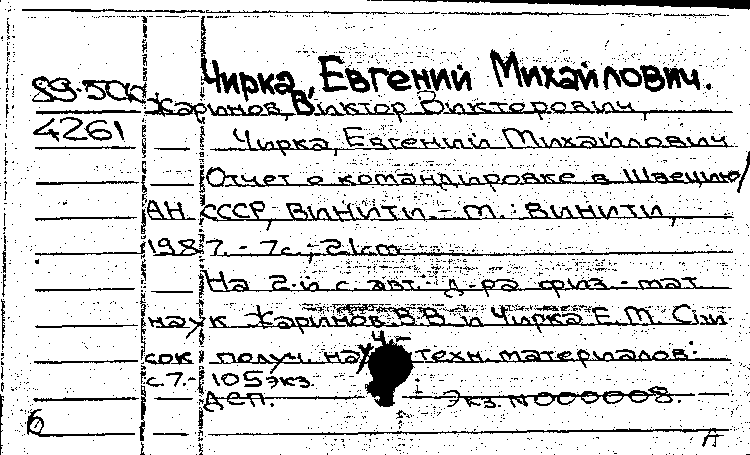 Чирка, Евгений Михайлович.
89-5СК Жаринов, Виктор Викторович,
4261 Чирка, Евгений Михайлович
Отчет о командировке в Швецию/
АН СССР, ВИНИТИ. - М.: ВИНИТИ,
1987. - 7с.; 21см
На 2-й с. авт. - д-ра физ. - мат.
наук Жаринов В.В. и Чирка Е.М. Спи
сок получ. науч.- техн. материалов:
с.7.- 105экз.
ДСП. Экз. N000008.
б
А